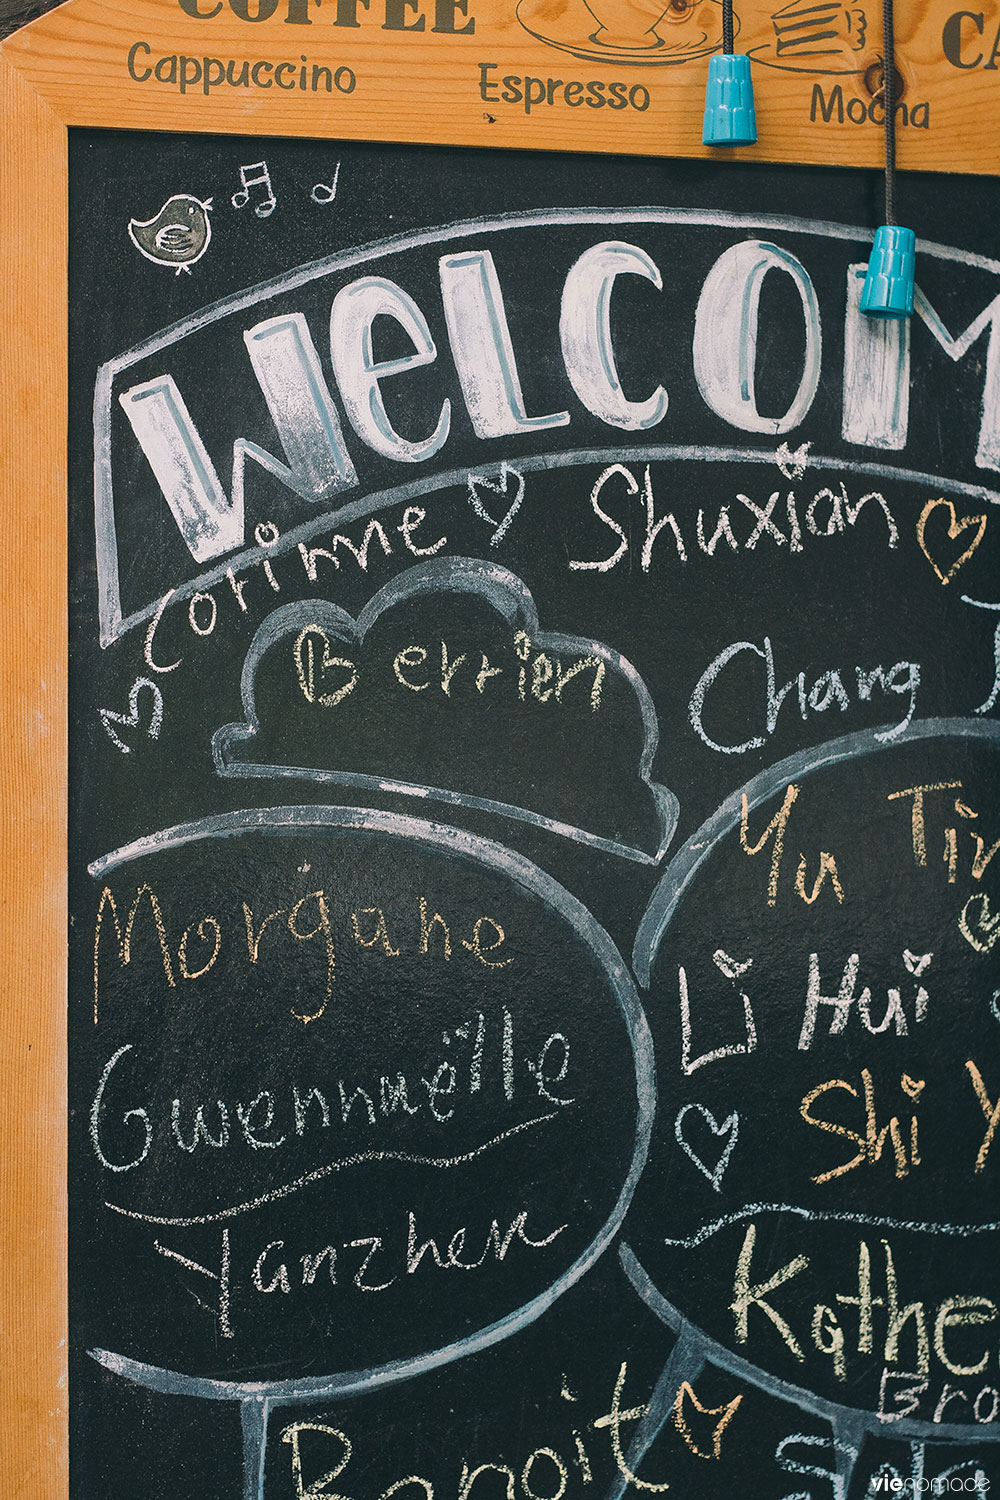 COFFEE
Cappuccino Espresso Mocha
WELCOM
Corinne Shuxian
Berrien
Chang
Morgane
Gwennaëlle
Yanzhen
Yu Tin
Li Hui
Shi Y
Kathe
Bro
Benoit
vienomade